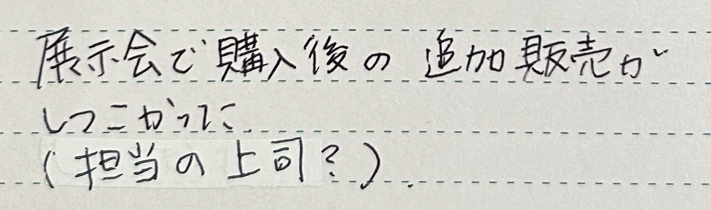 展示会で購入後の追加販売が
しつこかった
(担当の上司?).